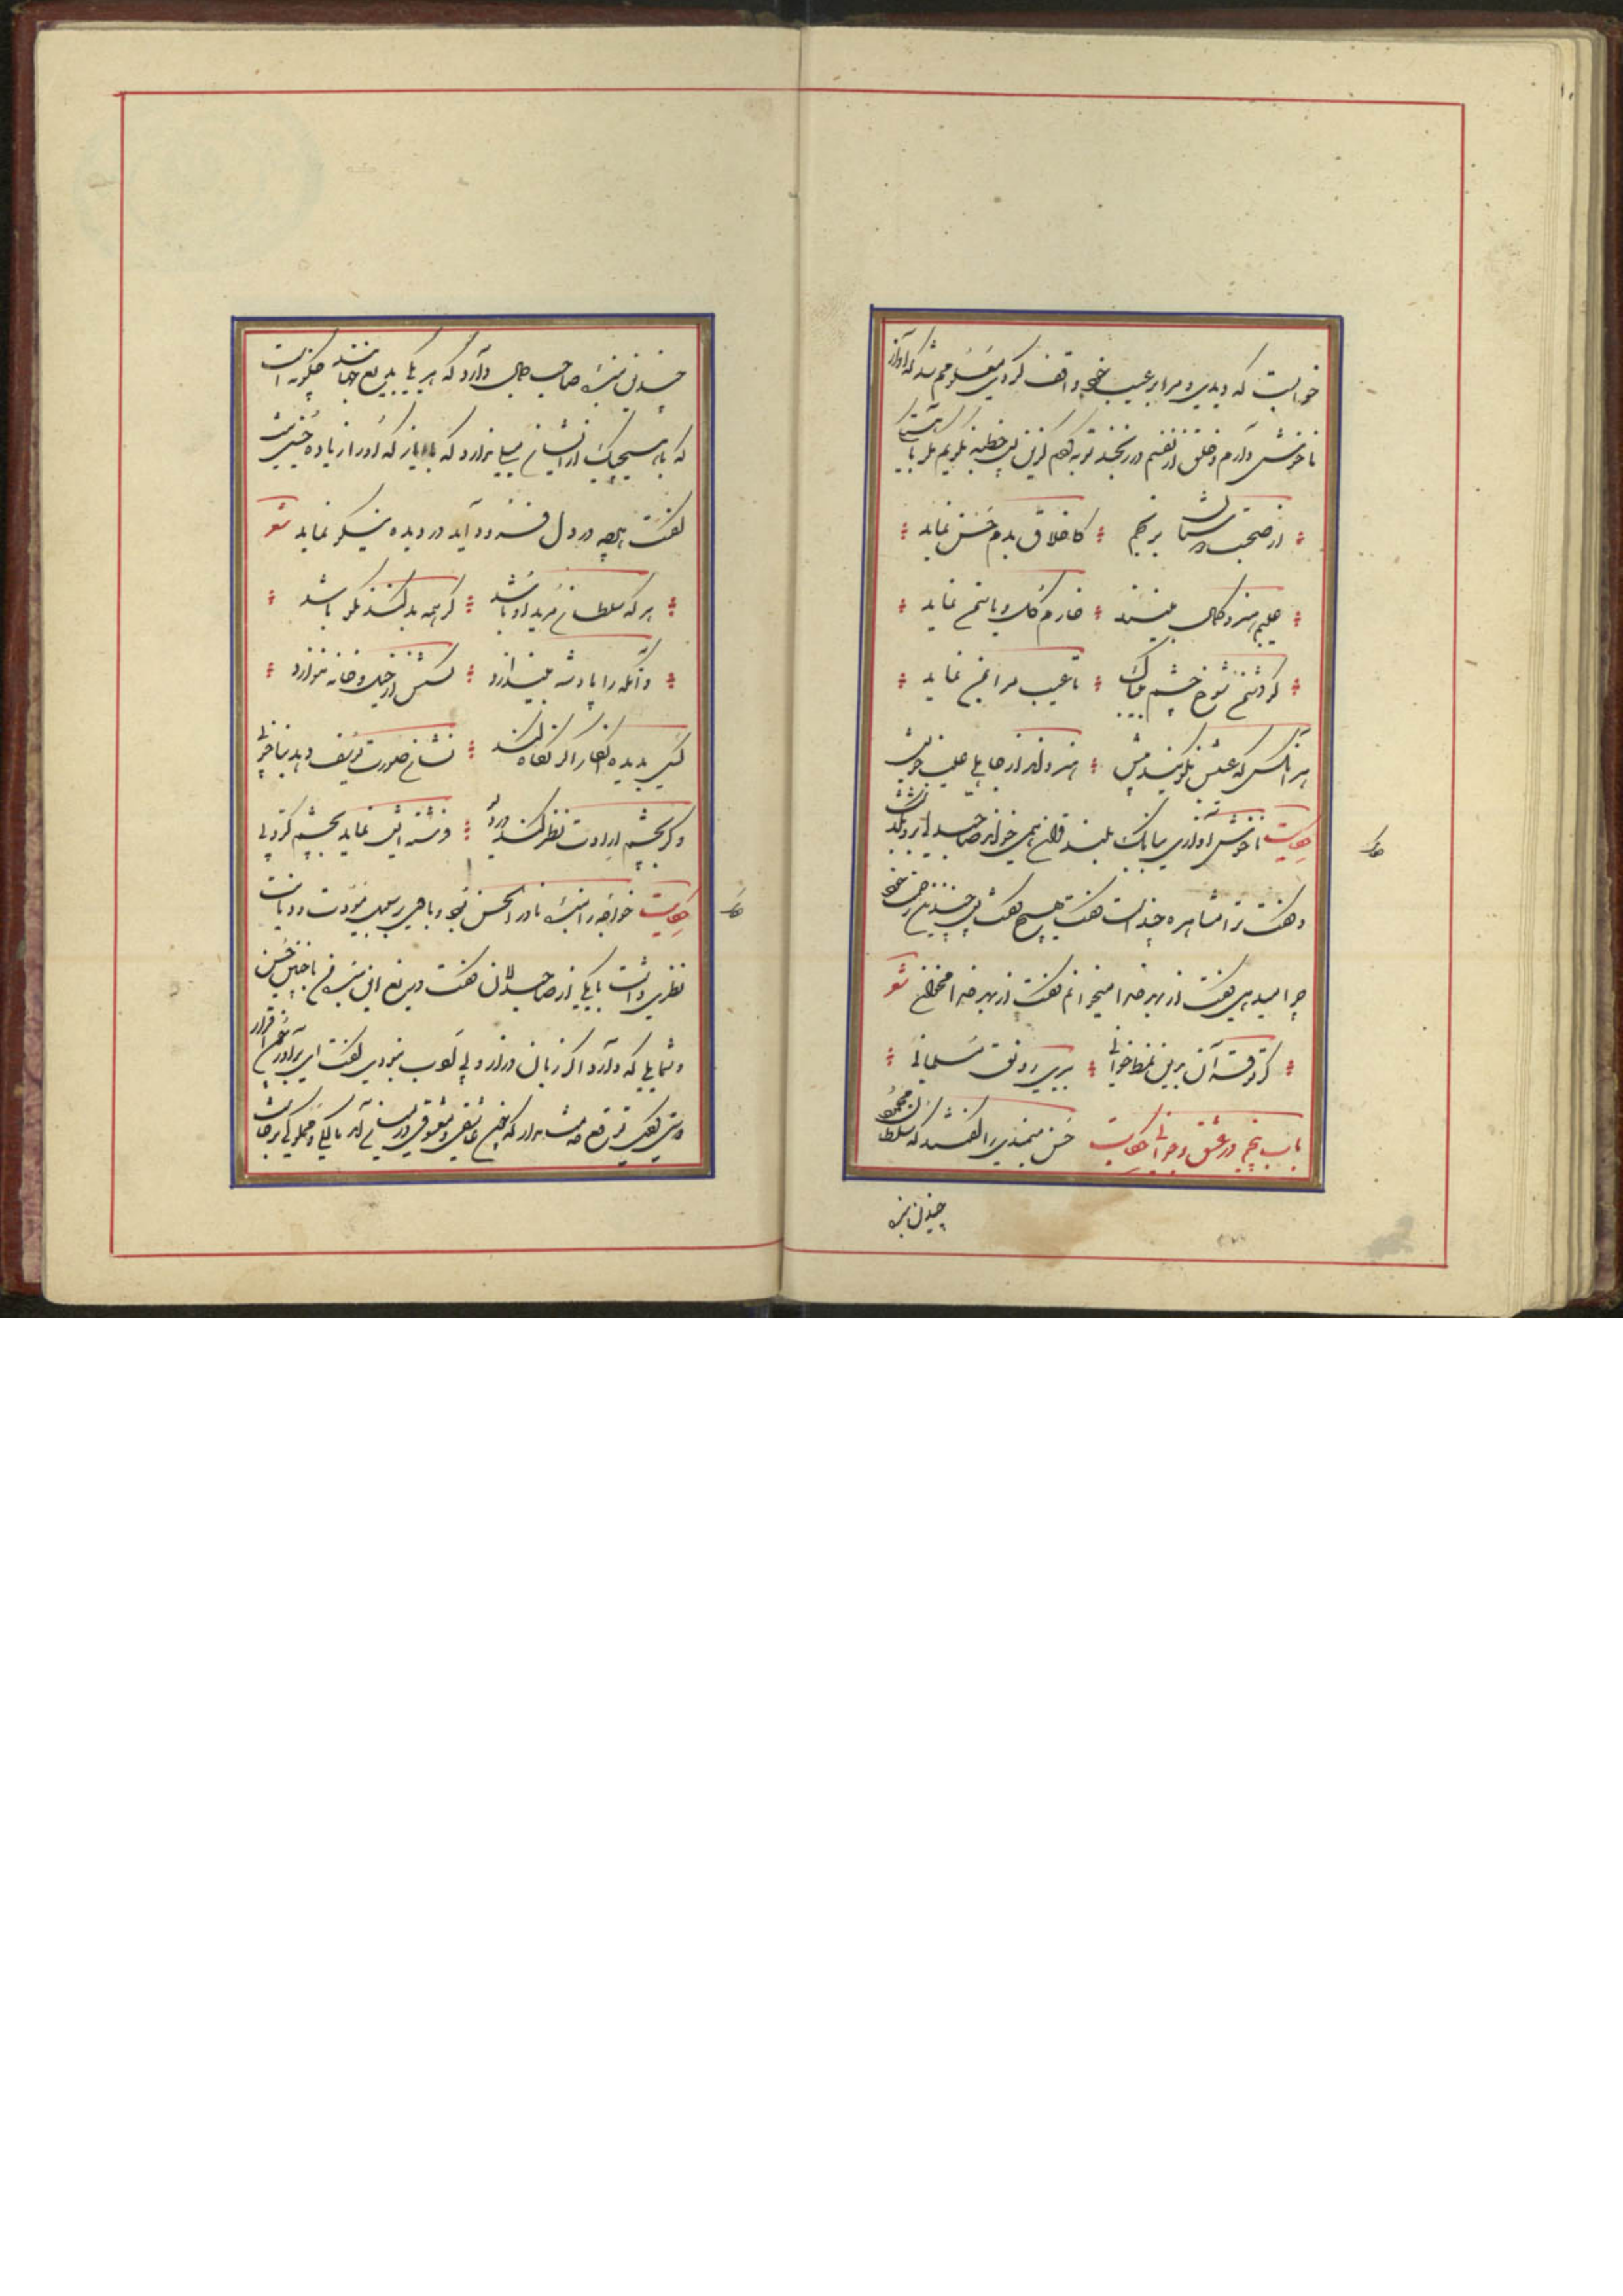 خوابست که دیدی و مرا بر عیب خود واقف کردی معلومم شد که آواز
ناخوش دارم و خلق از نفسم در رنجند توبه کردم کزین پس خطبه نگویم مگر بآهستگی
از صحبت دوستان برنجم کاخلاق بدم حسن نماید
عیبم هنر و کمال بیند خارم گل و یاسمن نماید
کو دشمن شوخ چشم بیباک تا عیب مرا بمن نماید
هر آنکس که عیبش نگویند پیش هنر داند از جاهلی عیب خویش
حکایت ناخوش آوازی ببانک بلند قرآن همی خواند صاحبدلی برو بگذشت
و گفت ترا مشاهره چندست گفت هیچ گفت پس چندین زحمت خود
چرا میدهی گفت از بهر خدا میخوانم گفت از بهر خدا مخوان شعر
گر تو قرآن برین نمط خوانی ببری رونق مسلمانی
باب پنجم در عشق و جوانی حکایت حسن میمندی را گفتند که سلطان محمود
چندین بنده
حکایت
چندین بنده صاحب جمال دارد که هر یکی بدیع جهانند چگونه است
که با هیچیک از ایشان میلی ندارد که با ایاز که او را زیاده حسنی نیست
گفت هرچه در دل فرود آید در دیده نیکو نماید شعر
هر که سلطان مرید او باشد گر همه بد کند نکو باشد
و آنکه را پادشه بیندازد کسش از خیل و خانه ننوازد
کسی بدیده انکار اگر نگاه کند نشان صورت یوسف دهد بناخوبی
وگر بچشم ارادت نظر کند در دیو فرشته ایش نماید بچشم کروبی
حکایت خواجه را بنده نادر الحسن بود و با وی بر سبیل مودت و دیانت
نظری داشت با یکی از صاحبدلان گفت دریغ این بنده من با چنین حسن
و شمایلی که دارد اگر زبان دراز و بی ادب نبودی گفت ای برادر چون اقرار
دوستی کردی توقع خدمت مدار که چون عاشقی و معشوقی در میان آمد مالکی و مملوکی برخاست
حکایت